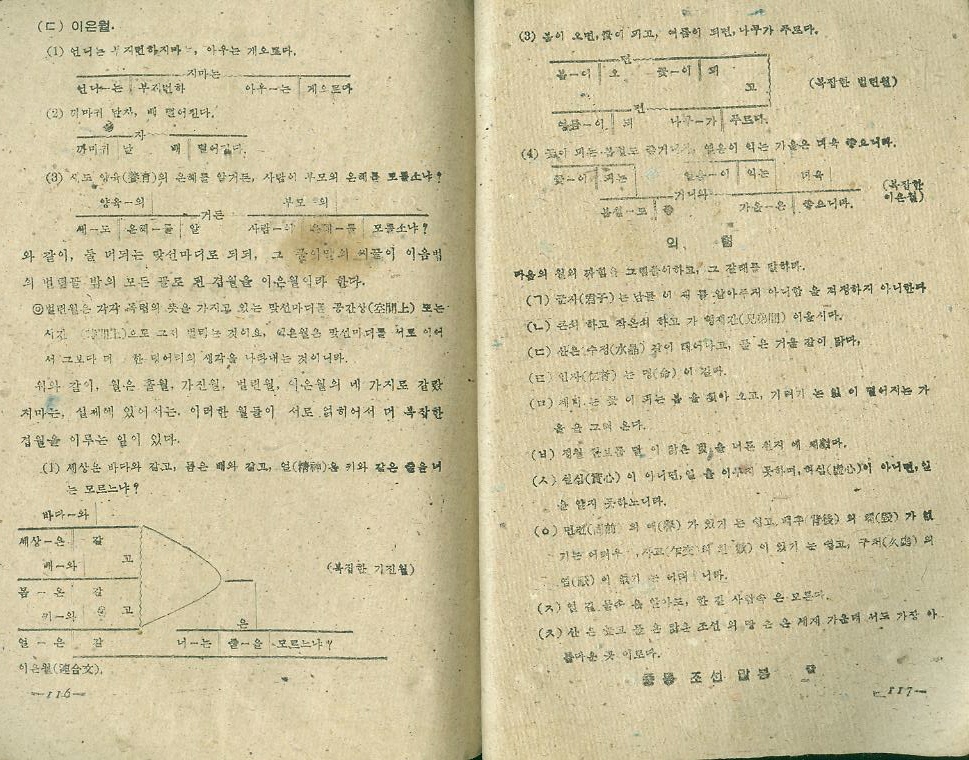 (ㄷ) 이은월.
(1) 언니는 부지런하지마는, 아우는 게으르다.
지마는
언니—는 부지런하 아우—는 게으르다
(2) 까마귀 날자, 배 떨어진다.
자
까마귀 날 배 떨어진다.
(3) 새도 양육(養育)의 은혜를 알거든, 사람이 부모의 은혜를 모를소냐?
양육—의 부모—의
거든
새—도 은혜—를 알 사람—이 은혜—를 모를소냐?
와 같이, 둘 더되는 맞선마디로 되되, 그
의 벌린꼴 밖의 모든 꼴로 된 겹월을 이은월이라 한다.
◎벌린월은 각각 독립의 뜻을 가지고 있는 맞선마디를 공간상(空間上) 또는
시간 (時間上)으로 그저 벌리는 것이요, 이은월은 맞선마디를 서로 이어
서 그보다 더 한 덩어리의 생각을 나타내는 것이니라.
위와 같이, 월은 홑월, 가진월, 벌린월, 이은월의 네 가지로 갈랐
지마는, 실제에 있어서는, 이러한 월들이 서로 얽히어서 더 복잡한
겹월을 이루는 일이 있다.
(1) 세상은 바다와 같고, 몸은 배와 같고, 얼(精神)은 키와 같은 줄을 너
는 모르느냐?
바다—와
세상—은 같
고
배—와
몸—은 같
고
키—와
은
얼—은 같 너—는 줄—을 모르느냐?
(복잡한 가진월)
이은월(連合文).
—116—
(3) 봄이 오면, 꽃이 피고, 여름이 되면, 나무가 푸르다.
면
봄—이 오 꽃—이 피
고
면
여름—이 되 나무—가 푸르다.
(복잡한 벌린월)
(4) 꽃이 피는 봄철도 좋거니와, 열음이 익는 가을은 더욱 좋으니라.
꽃—이 피는 열음—이 익는 더욱
거니와
봄철—도 좋 가을—은 좋으니라.
(복잡한 이은월)
익 힘
다음의 월의 짜힘을 그림풀이하고, 그 갈래를 말하라.
(ㄱ) 군자(君子)는 남들이 재를 알아주지 아니함을 걱정하지 아니한다
(ㄴ) 큰쇠 하고 작은쇠 하고 가 형제간(兄弟間) 이올시다.
(ㄷ) 산은 수정(水晶) 같이 맑다,
(ㄹ) 인자(仁者) 는 명(命) 이 길다.
(ㅁ) 제비 는 꽃 이 피는 봄 을 찾아 오고, 기러기 는 잎 이 떨어지는 가
을 을 그려 온다.
(ㅂ) 정월 대보름 달 이 맑은 빛을
(ㅅ) 실심(實心) 이 아니면, 일 을 이루지 못하며, 허심(虛心)이 아니면, 일
을 알지 못하느니라.
(ㅇ) 면전(面前) 의 예(譽) 가 있기 는 쉽고, 배후(背後) 의 훼(毁) 가 없
기는 어려우
(ㅈ) 열 길 물속 은 알아도, 한 길 사람속 은 모른다.
(ㅊ) 산 은 높고 물 은 맑은 조선 의 땅 은 온 세계 가운데 서도 가장 아
름다운 곳 이로다.
중등 조선 말본 끝
—117—